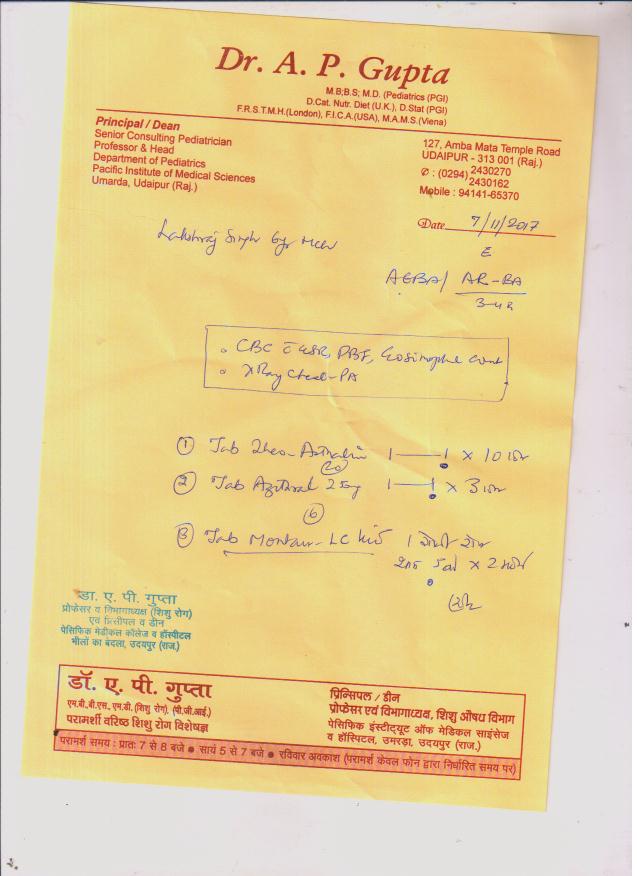 Dr. A. P. Gupta
M.B;B.S; M.D. (Pediatrics (PGI)
D.Cat. Nutr. Diet (U.K.), D.Stat (PGI)
F.R.S.T.M.H.(London), F.I.C.A.(USA), M.A.M.S.(Viena)
Principal / Dean
Senior Consulting Pediatrician
Professor & Head
Department of Pediatrics
Pacific Institute of Medical Sciences
Umarda, Udaipur (Raj.)
127, Amba Mata Temple Road
UDAIPUR - 313 001 (Raj.)
✆ : (0294) 2430270
2430162
Mobile : 94141-65370
Date 7/11/2017
Singh 6yr
AR-BA
CBC c ESR, PBF, Eosinophil count
X Ray Chest-PA
① Tab Theo-Asthalin 1—1 x 10
(20)
② Tab Azithral 250mg 1—1 x 3
(6)
③ Tab Montair-LC 1 गोली रोज
x 2
डा. ए. पी. गुप्ता
प्रोफेसर व विभागाध्यक्ष (शिशु रोग)
एवं प्रिंसीपल व डीन
पेसिफिक मेडीकल कॉलेज व हॉस्पीटल
भीलों का बेदला, उदयपुर (राज.)
डॉ. ए. पी. गुप्ता
एम.बी.,बी.एस., एम.डी. (शिशु रोग), (पी.जी.आई.)
परामर्शी वरिष्ठ शिशु रोग विशेषज्ञ
प्रिन्सिपल / डीन
प्रोफेसर एवं विभागाध्यक्ष, शिशु औषध विभाग
पेसिफिक इंस्टीट्यूट ऑफ मेडिकल साइंसेज
व हॉस्पिटल, उमरड़ा, उदयपुर (राज.)
परामर्श समय : प्रातः 7 से 8 बजे ● सायं 5 से 7 बजे ● रविवार अवकाश (परामर्श केवल फोन द्वारा निर्धारित समय पर)